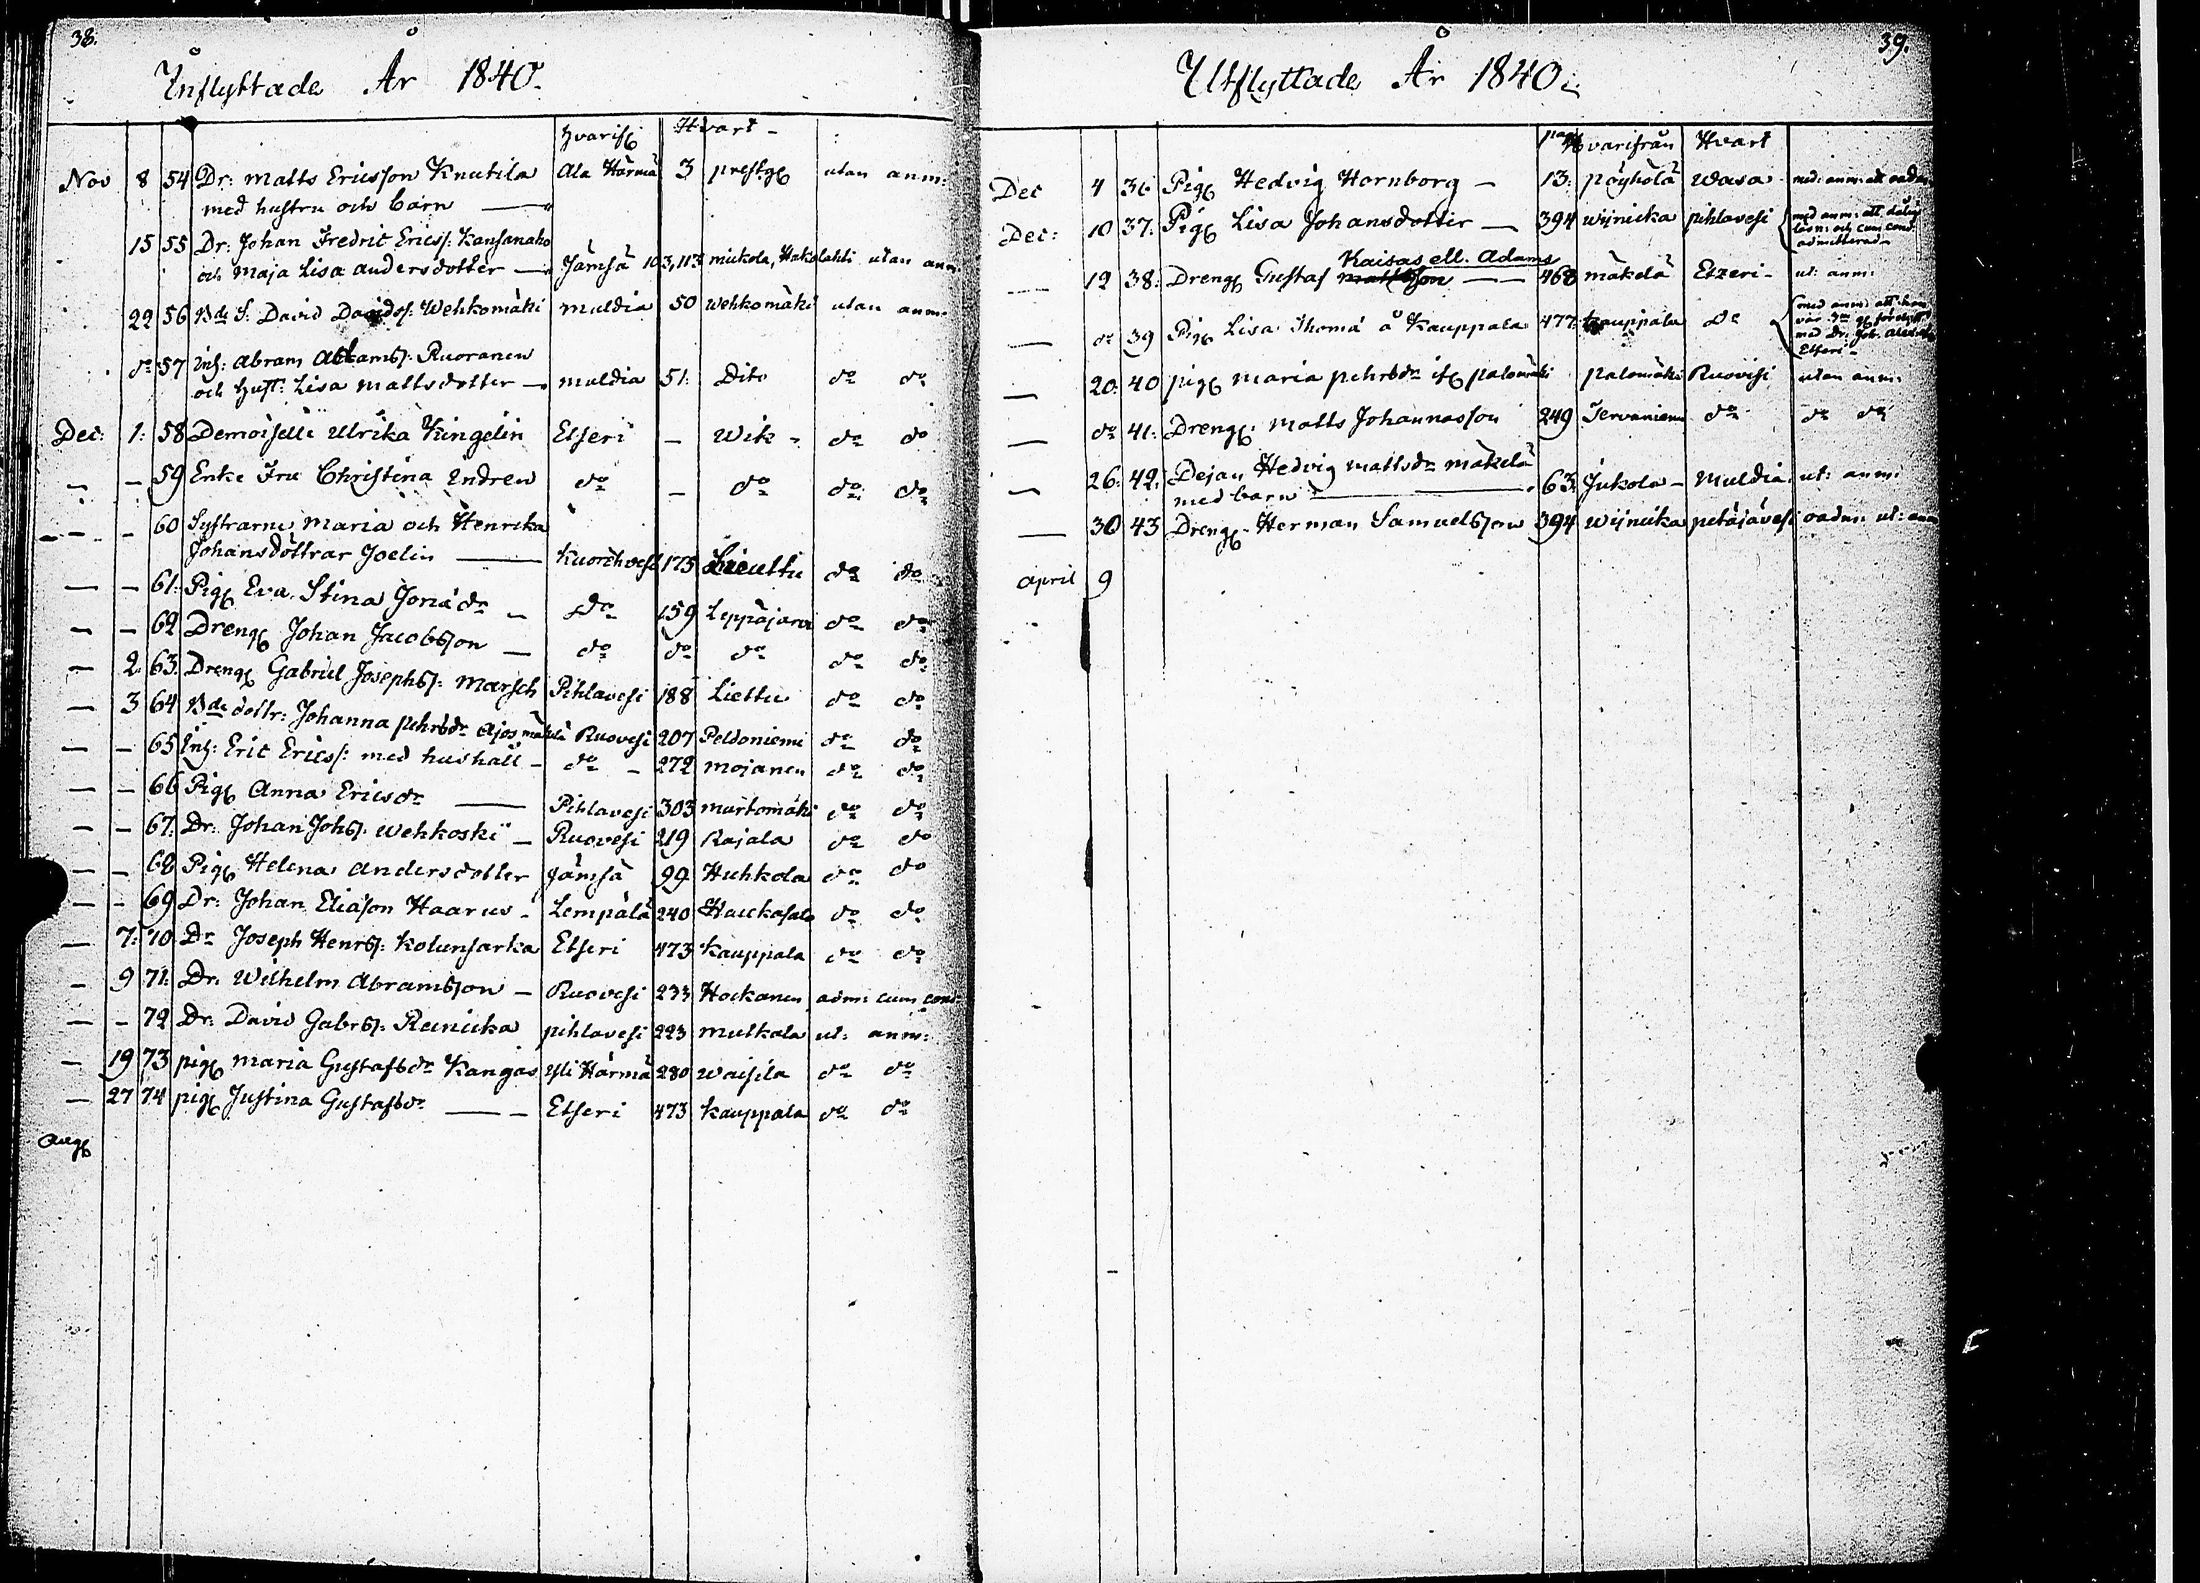 38.
Inflyttade År 1840.
Hvarifr Hvart
Nov 8 54 Dr: Matts Ericsson Knutila Ala Härmä 3 prestg utan anm:
med hustru och barn
15 55 Dr: Johan Fredric Erics: Kansanaho
och Maja Lisa Andersdotter Jämsä 103,113 mickola, Hakolahti utan anm
22 56 Bde S: David Davids: Wehkomäki Muldia 50 Wehkomäki utan anm:
do 57 Inh: Abram Adams: Ruoranen
och hust: Lisa Mattsdotter muldia 51: Dito do do
Dec: 1: 58 Demoiselle Ulrika Kingelin Etseri — Wik - do do
— — 59 Enke Fru Christina Indren do — do do do
— — 60 Systrarne Maria och Henrika
Johansdöttrar Joelin Kuorehvesi 175 Lieuttu do do
— — 61: Pig Eva Stina Jonædr — do 159 Leppäjärvi do do
— — 62 Dreng Johan Jacobsson — do do do do do
— 2. 63. Dreng Gabriel Josephs: Marsch Pihlavesi 188 Liettu do do
— 3 64 Bde dottr: Johanna Pehrsdr Ajosmäkilä Ruovesi 207 Peldoniemi do do
— — 65 Inh: Eric Erics: med hushåll — do — 272 Mojanen do do
— — 66 Pig Anna Ericsdr Pihlavesi 303 Murtomäki do do
— — 67: Dr: Johan Johs: Wehkoski — Ruovesi 219 Rajala do do
— — 68 Pig Helena Andersdotter Jämsä 99 Huhkola do do
— — 69 Dr: Johan Eliason Haarus - Lempälä 240 Haukasalo do do
— 7: 70 Dr Joseph Henrs: Kolunsarka Etseri 473 Kauppala do do
— 9 71: Dr: Wilhelm Abramsson — Ruovesi 233 Hockanen adm: cum cond:
— — 72 Dr: David Gabrs: Reinicka pihlavesi 223 Mutkala ut: anm:
— 19 73 pig Maria Gustafsdr Kangas Yli Härmä 280 Waisila do do
— 27 74 pig Justina Gustafsdr Etseri 473 Kauppala do do
Aug
39.
Utflyttade År 1840
pag Hvarifrån Hvart
Dec 4 36 Pig Hedvig Hornborg — 13: pöyhölä Wasa med: anm: att
Dec: 10 37: Pig Lisa Johansdotter — 394 Wijnicka pihlavesi med anm: att dålig
läsn: och cum cond
admitterad
Kaisas ell. Adams
— 12 38: Dreng Gustaf Mattsson — 468 mäkelä Etzeri — ut: anm:
— do 39 Pig Lisa Thomæ å Kauppala 477: Kauppala do med anm: att hon
med Dr: Joh.
Etseri
— 20: 40 pig Maria pehrsdr ifr palomäki palomäki Ruovesi utan anm:
— do 41: Dreng: Matts Johannesson 249 Tervaniemi do do do
— 26: 42: Dejan Hedvig Mattsdr mäkelä
med barn 63: Jukola — Muldia: ut: anm:
— 30 43 Dreng Herman Samuelsson 394 Wijnicka petäjävesi ut: anm
April 9